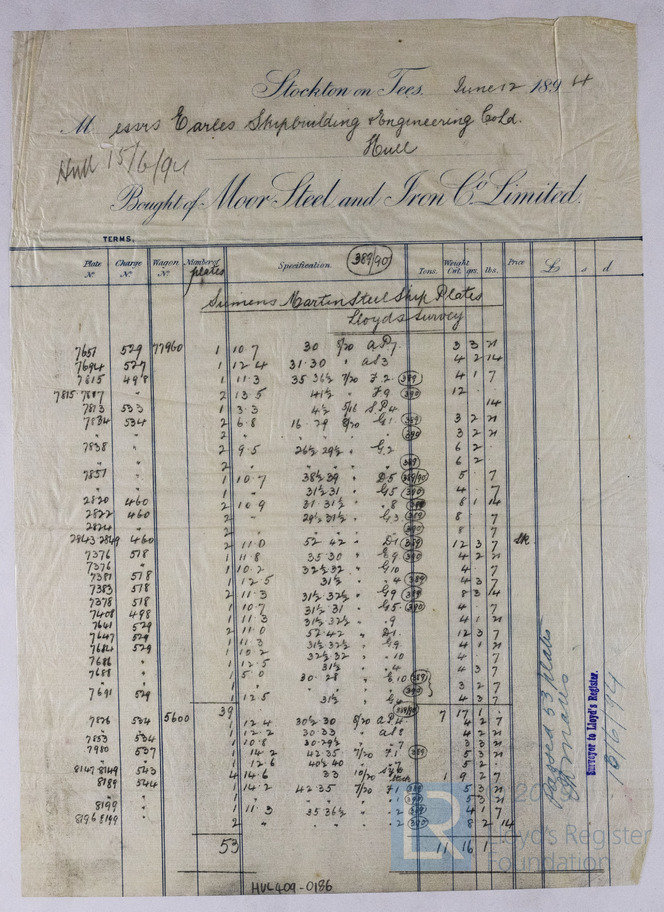 Stockton on Tees. June 12 1894
Messrs Earles Shipbuilding & Engineering Co Ld.
Hull
Hull 15/6/94
Bought of Moor Steel and Iron Co Limited.
TERMS.
Plate No Charge No Wagon No Number of plates Specification 389/90 Tons. Weight Cwt. qrs. lbs. Price £ s d
Siemens Martin Steel Ship Plates
Lloyds Survey
7651 529 77960 1 10.7 30 8/20 a P7 3 3 21
7694 527 1 12.4 31.30 " a S 3 4 2 14
7815 498 1 11.3 35 36½ 7/20 F.2 389 4 1 7
7815 7817 " 2 13.5 41½ " F9 390 12
7813 533 1 3.3 4½ 5/16 S.P.4 14
7834 534 2 6.8 16.29 8/20 G.1 389 3 2 21
" " 2 " " 390 3 2 21
7838 " 2 9.5 26½ 29½ " G.2 6 2
" 2 " " 389 6 2
7851 " 1 10.7 38½ 39 " D.5 389/90 5 7
" 1 " 31½ 31 " G.5 390 4 7
2820 460 2 10.9 31 31½ " 8 389 8 1 14
2822 460 2 " 29½ 31½ " G.3 389 8 7
2824 " 2 " " 390 8 7
2843 2849 460 2 11.0 52 42 " D1 389 12 3 7
7376 518 1 11.8 35 30 " E9 390 4 2 21
7376 " 1 10.2 32½ 32 " G10 4 7
7381 518 1 12.5 31½ " " 4 389 4 3 7
7383 518 2 11.3 31½ 32½ " G9 389 8 3 14
7378 518 1 10.7 31½ 31 " G5 390 4 7
7408 498 1 11.3 31½ 32½ " " 9 4 1 7
7641 529 2 11.0 52.42 " D1 12 3 7
7647 529 1 11.3 31½ 32½ " G9 4 1 7
7684 529 1 10.2 32½ 32 " " 10 4 7
7686 " 1 12.5 31½ " " 4 4 3 7
7688 " 1 5.0 30.28 " E10 389
390 3 2 7
7691 529 1 12.5 31½ " G4 4 3 7
39 389/90 7 17 1
7826 534 5600 1 12.4 30½ 30 8/20 a P4 4 2 7
" 1 12.2 30.33 " a S 8 4 2 21
7853 534 1 10.8 30.29½ " 7 3 3 21
7980 537 1 14.2 42.35 7/20 F1 389 5 3 21
" 1 12.6 40½ 40 " 5 2
8147 8149 543 4 14.6 33 10/20 1 9 2 7
8189 544 1 14.2 42 35 7/20 F.1 389 5 3 21
" 1 " " 390 5 3 21
8199 " 1 11.3 35 36½ " 2 389 4 1 7
8196 8199 " 2 " " 2 390 8 2 14
53 11 16 1
Passed 53 plates
Surveyor to Lloyd's Register.
15/6/94
HUL409-0186
Lloyd's Register
Foundation